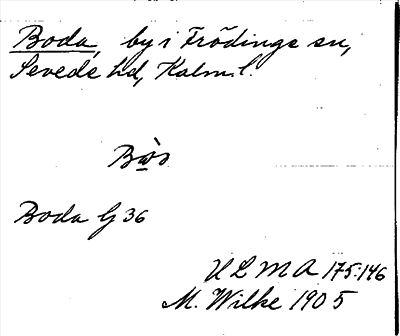 Boda, by i Frödinge sn,
Sevede hd, Kalm. l.
Boda G 36
ULMA 175:146
M. Wilke 1905